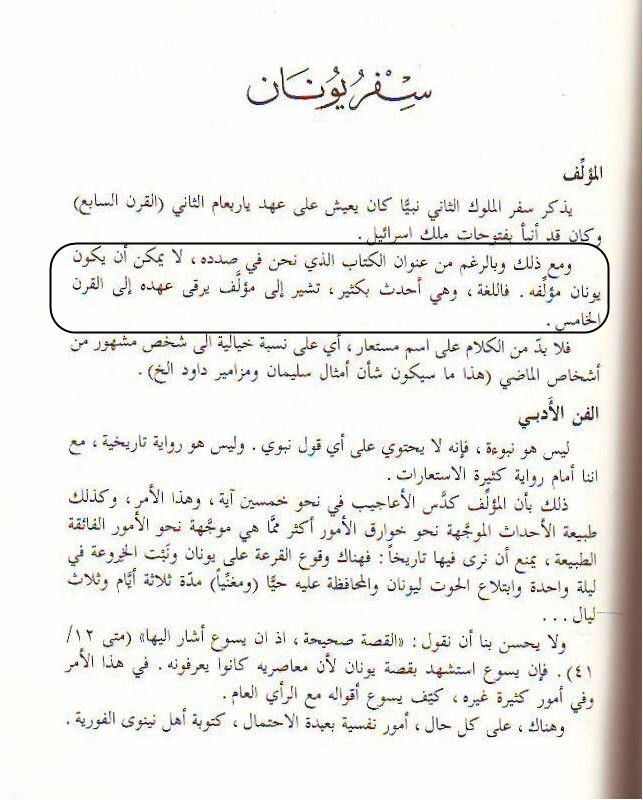 سِفْرُ يُونَان
المؤلِّف
يذكر سفر الملوك الثاني نبيًّا كان يعيش على عهد ياربعام الثاني (القرن السابع)
وكان قد أنبأ بفتوحات ملك اسرائيل .
ومع ذلك وبالرغم من عنوان الكتاب الذي نحن في صدده ، لا يمكن أن يكون
يونان مؤلِّفه . فاللغة ، وهي أحدث بكثير ، تشير إلى مؤلَّف يرقى عهده إلى القرن
الخامس .
فلا بدّ من الكلام على اسم مستعار ، أي على نسبة خيالية الى شخص مشهور من
أشخاص الماضي (هذا ما سيكون شأن أمثال سليمان ومزامير داود الخ) .
الفن الأَدبي
ليس هو نبوءة ، فإنه لا يحتوي على أي قول نبوي . وليس هو رواية تاريخية ، مع
اننا أمام رواية كثيرة الاستعارات .
ذلك بأن المؤلِّف كدَّس الأعاجيب في نحو خمسين آية ، وهذا الأمر ، وكذلك
طبيعة الأحداث الموجَّهة نحو خوارق الأمور أكثر ممَّا هي موجَّهة نحو الأمور الفائقة
الطبيعة ، يمنع أن نرى فيها تاريخاً : فهناك وقوع القرعة على يونان ونَبْت الخِروعة في
ليلة واحدة وابتلاع الحوت ليونان والمحافظة عليه حيًّا (ومغنِّياً) مدّة ثلاثة أيَّام وثلاث
ليال . . .
ولا يحسن بنا أن نقول : «القصة صحيحة ، اذ ان يسوع أشار اليها» (متى ١٢/
٤١) . فإن يسوع استشهد بقصة يونان لأن معاصريه كانوا يعرفونه . في هذا الأمر
وفي أمور كثيرة غيره ، كيَّف يسوع أقواله مع الرأي العام .
وهناك ، على كل حال ، أمور نفسية بعيدة الاحتمال ، كتوبة أهل نينوى الفورية .